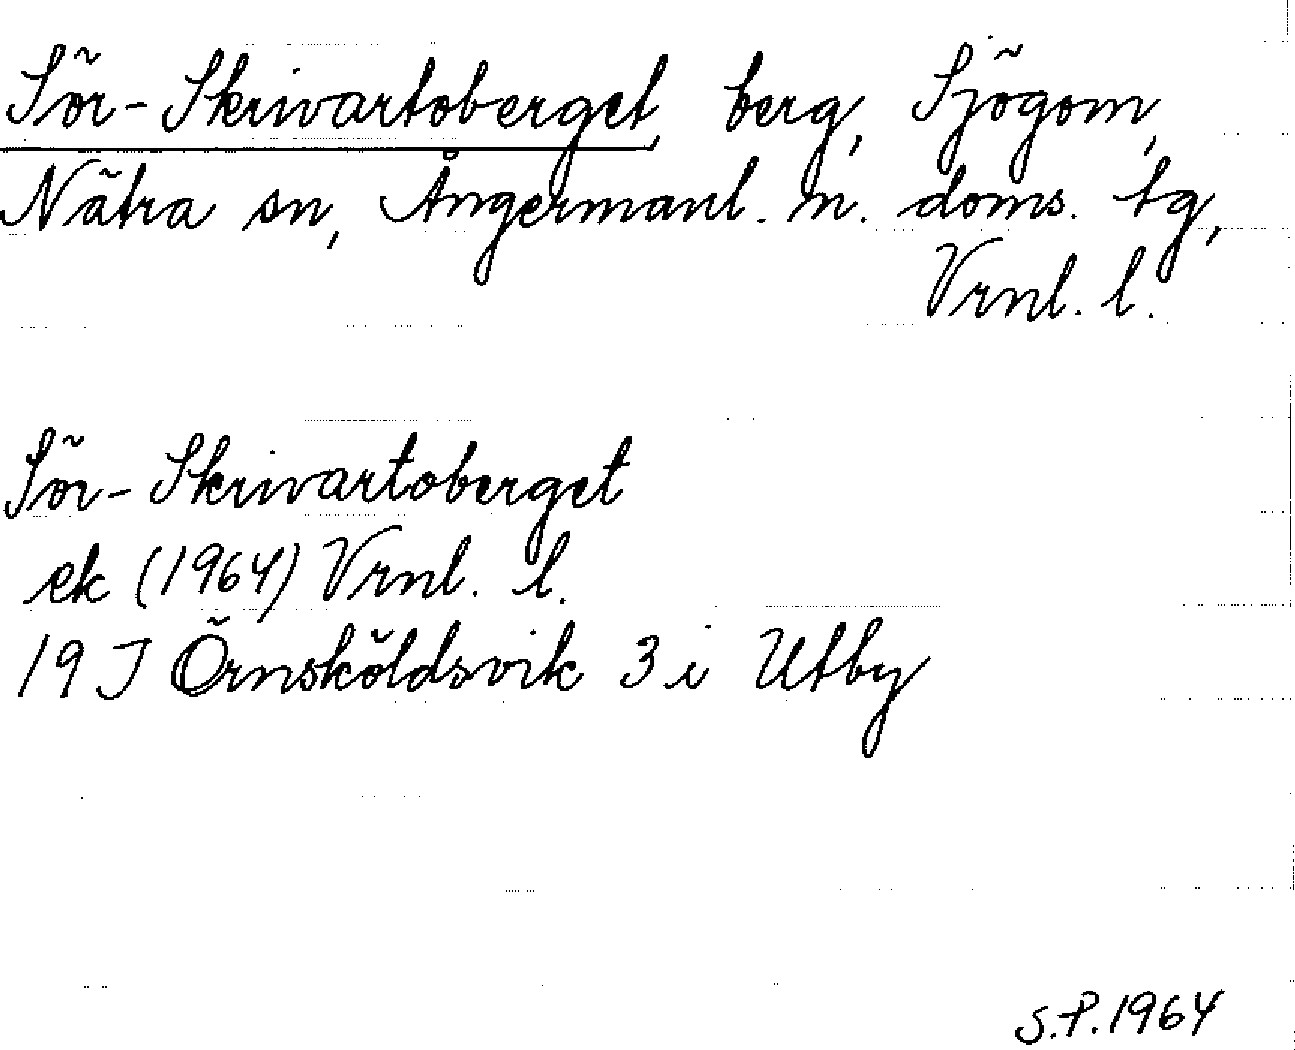 Sör-Skrivartoberget, berg, Sjögom,
Nätra sn, Ångermanl. m. doms. tg,
Vrnl. l.
Sör-Skrivartoberget
ek (1964) Vrnl. l.
19 J Örnsköldsvik 3 i Utby
S.P. 1964